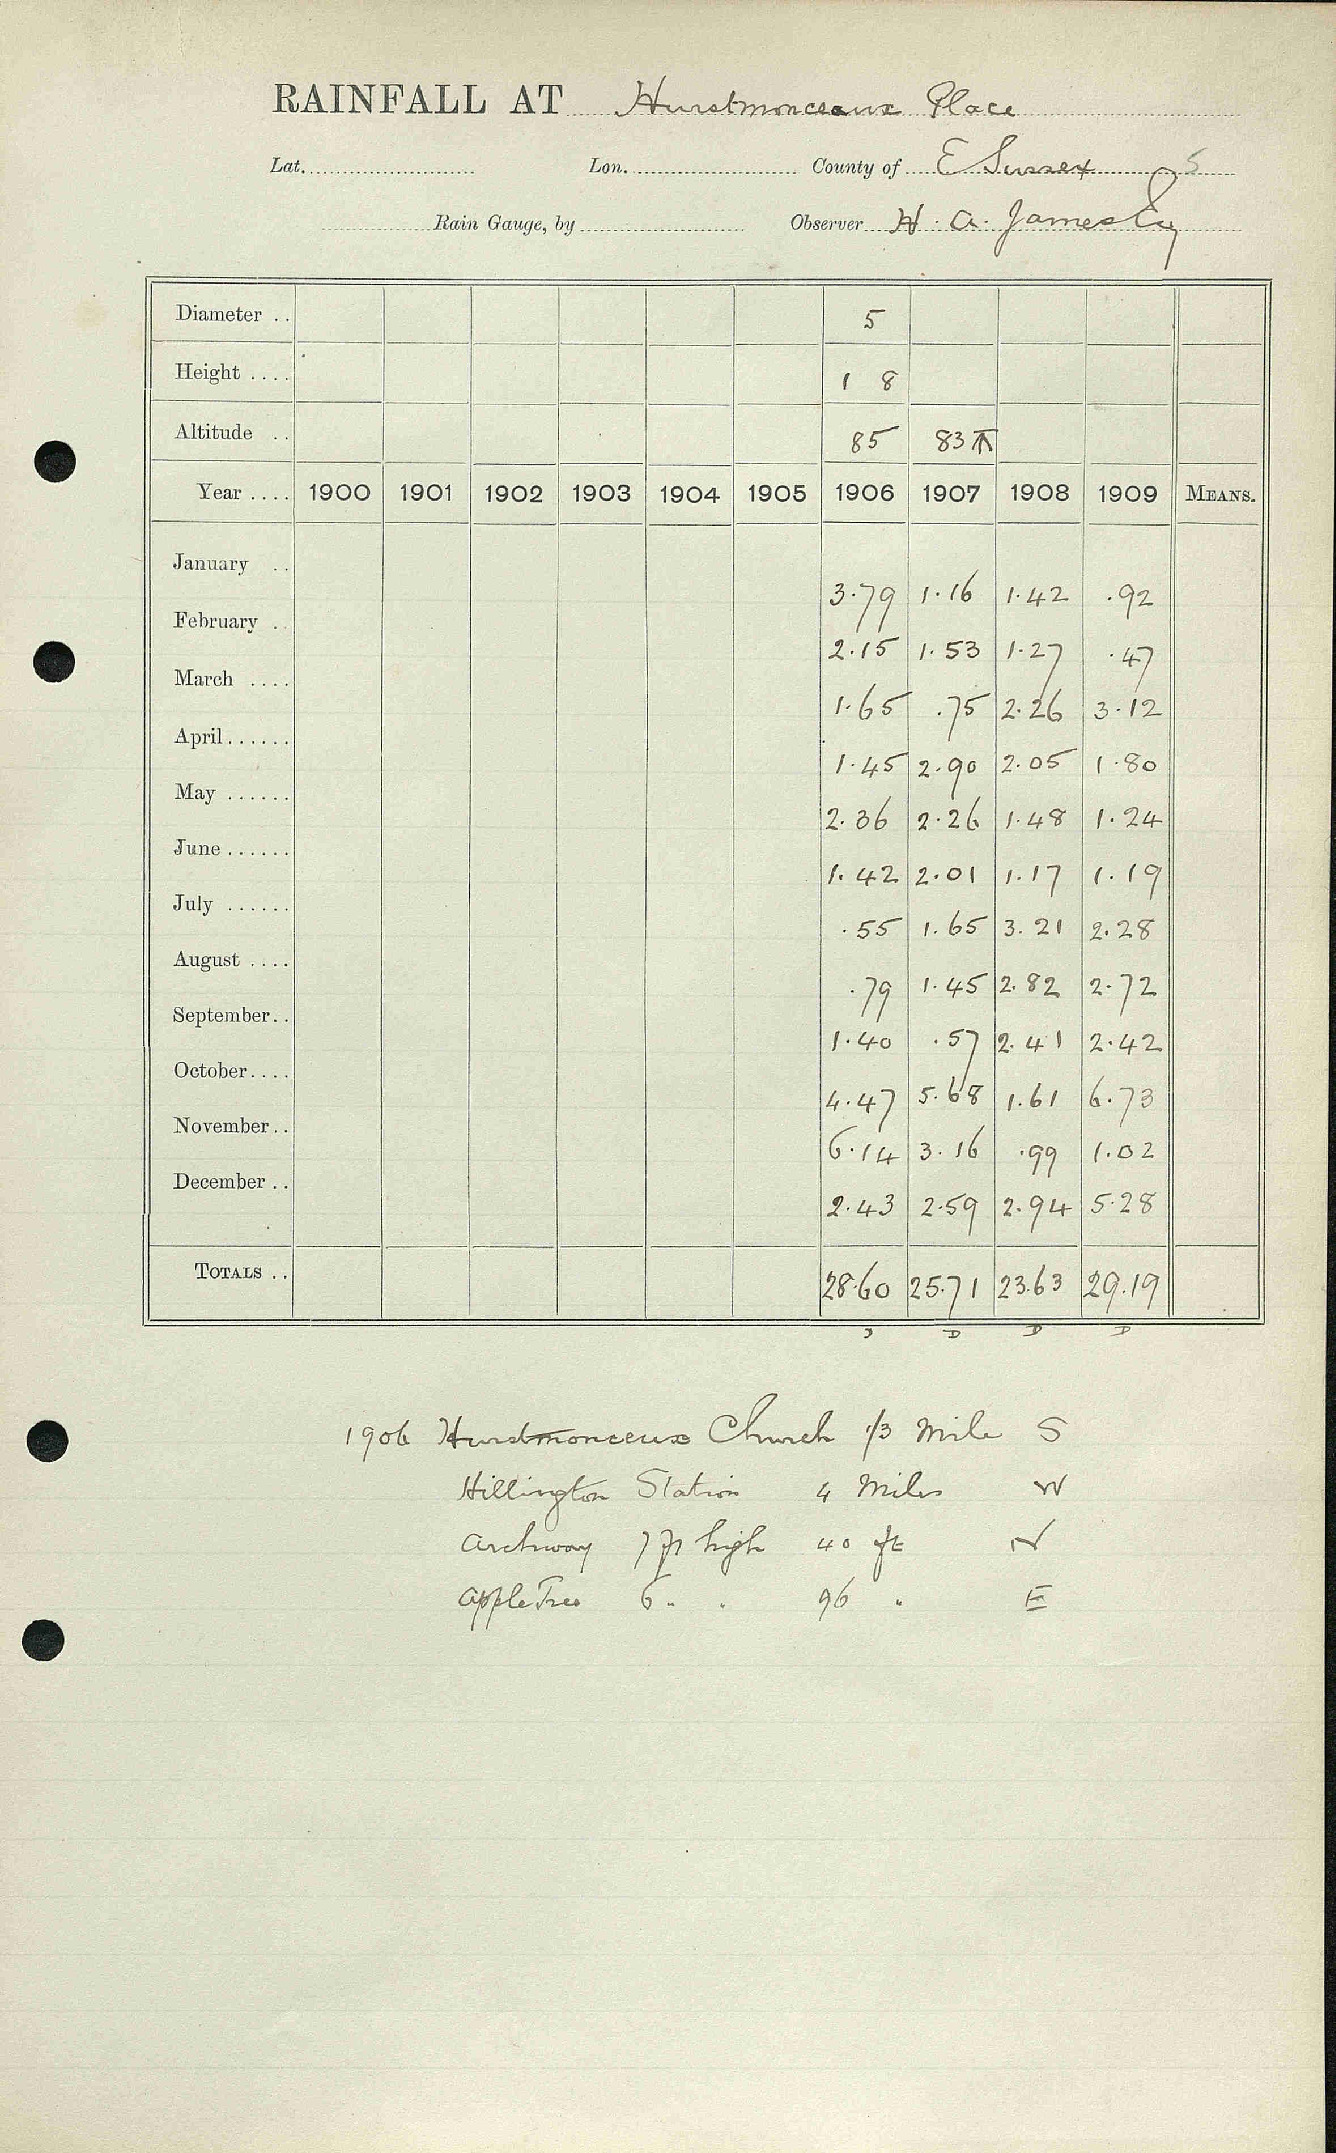 RAINFALL AT Hurstmonceaux Place
Lat. Lon. County of E Sussex 5
Rain Gauge, by Observer H. A. James Esq
Diameter .. 5
Height .... 1 8
Altitude .. 85 83
Year .... 1900 1901 1902 1903 1904 1905 1906 1907 1908 1909 MEANS.
January .. 3.79 1.16 1.42 .92
February .. 2.15 1.53 1.27 .47
March .... 1.65 .75 2.26 3.12
April...... 1.45 2.90 2.05 1.80
May ...... 2.36 2.26 1.48 1.24
June...... 1.42 2.01 1.17 1.19
July ...... .55 1.65 3.21 2.28
August .... .79 1.45 2.82 2.72
September.. 1.40 .57 2.41 2.42
October.... 4.47 5.68 1.61 6.73
November.. 6.14 3.16 .99 1.02
December .. 2.43 2.59 2.94 5.28
TOTALS .. 28.60 25.71 23.63 29.19
D D D
1906 Hurstmonceux Church 1/3 Mile S
Hillington Station 4 Miles W
Archway 7 ft high 40 ft N
Apple Tree 6 " " 96 " E